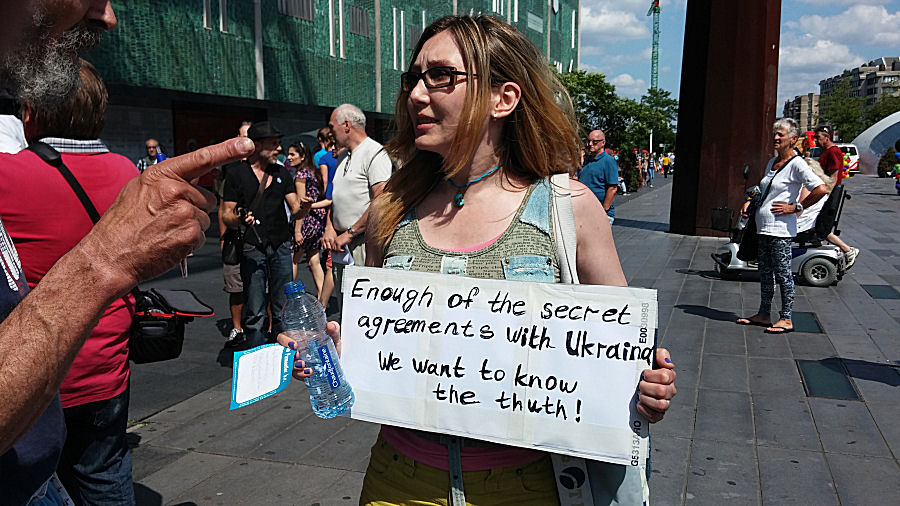 Enough of the secret
agreements with Ukraina
We want to know
the thuth!
E0000998
G5313ANO